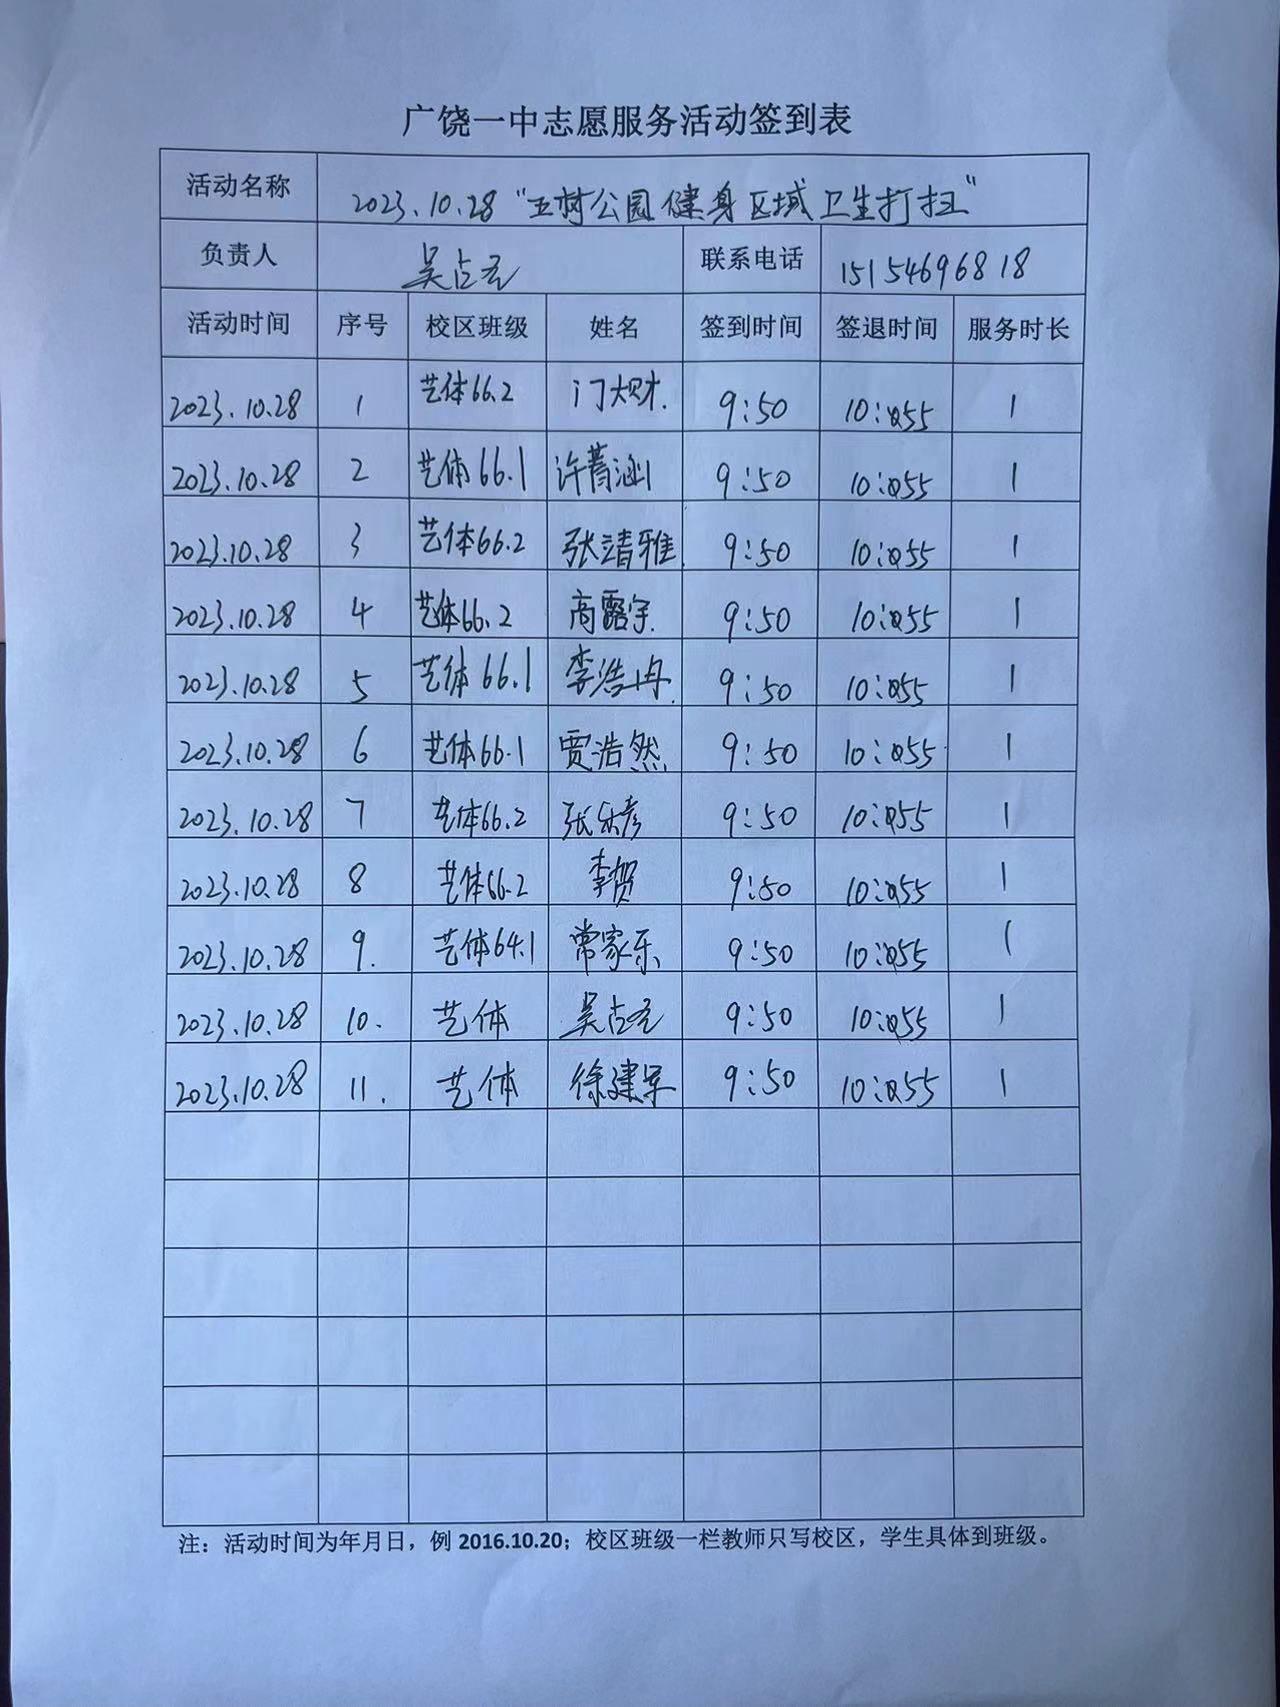 广饶一中志愿服务活动签到表
活动名称 2023.10.28 "五村公园健身区域卫生打扫"
负责人 吴占元 联系电话 15154696818
活动时间 序号 校区班级 姓名 签到时间 签退时间 服务时长
2023.10.28 1 艺体66.2 9:50 10:55 1
2023.10.28 2 艺体66.1 许菁涵 9:50 10:55 1
2023.10.28 3 艺体66.2 张靖雅 9:50 10:55 1
2023.10.28 4 艺体66.2 高露宇 9:50 10:55 1
2023.10.28 5 艺体66.1 李浩冉 9:50 10:55 1
2023.10.28 6 艺体66.1 贾浩然 9:50 10:55 1
2023.10.28 7 艺体66.2 张乐彦 9:50 10:55 1
2023.10.28 8 艺体66.2 李贺 9:50 10:55 1
2023.10.28 9. 艺体64.1 常家乐 9:50 10:55 1
2023.10.28 10. 艺体 吴占元 9:50 10:55 1
2023.10.28 11. 艺体 徐建军 9:50 10:55 1
注：活动时间为年月日，例 2016.10.20；校区班级一栏教师只写校区，学生具体到班级。